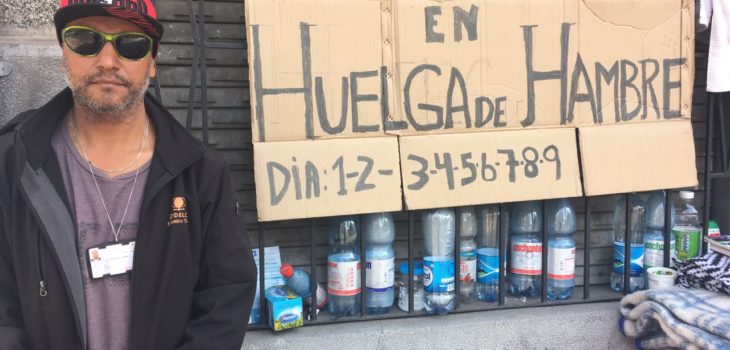 EN
HUELGA DE HAMBRE
DIA: 1-2- 3-4-5-6-7-8-9
cachantun